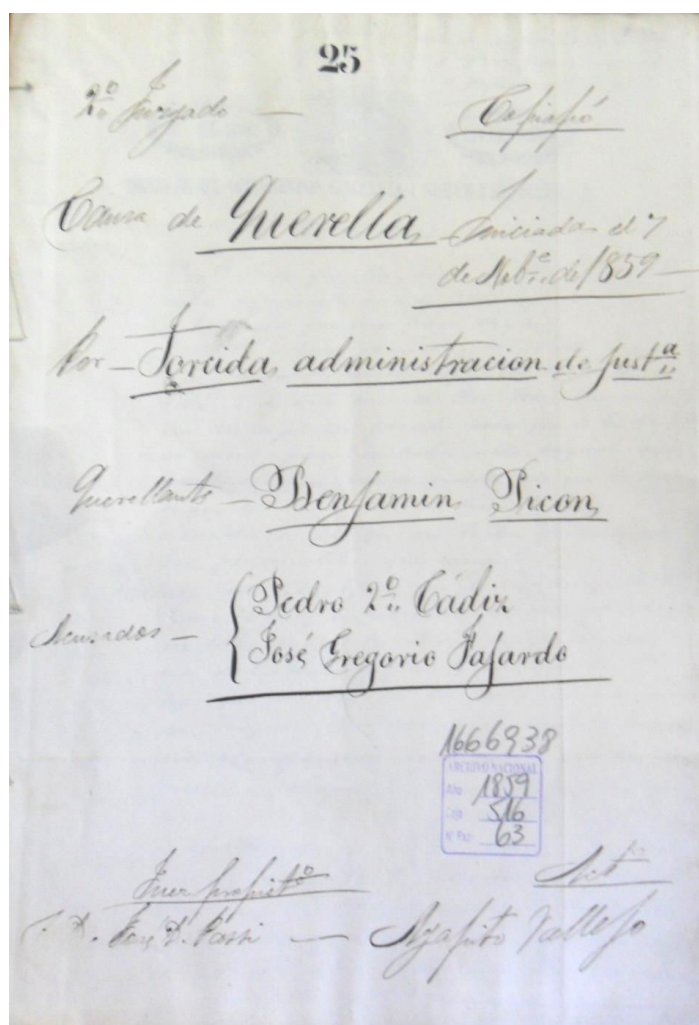 25
2º Juzgado — Copiapó
Causa de Querella Iniciada el 7
de Nobre. de 1859
Por — Torcida administracion de justª
Querellante — Benjamin Picon
Acusados —
Pedro 2º Cádiz
José Gregorio Fajardo
1666938
ARCHIVO NACIONAL
Año 1859
Leg 516
N. Pza 63
Juez propietº
Actº
D. José D.
— Agapito Vallejo